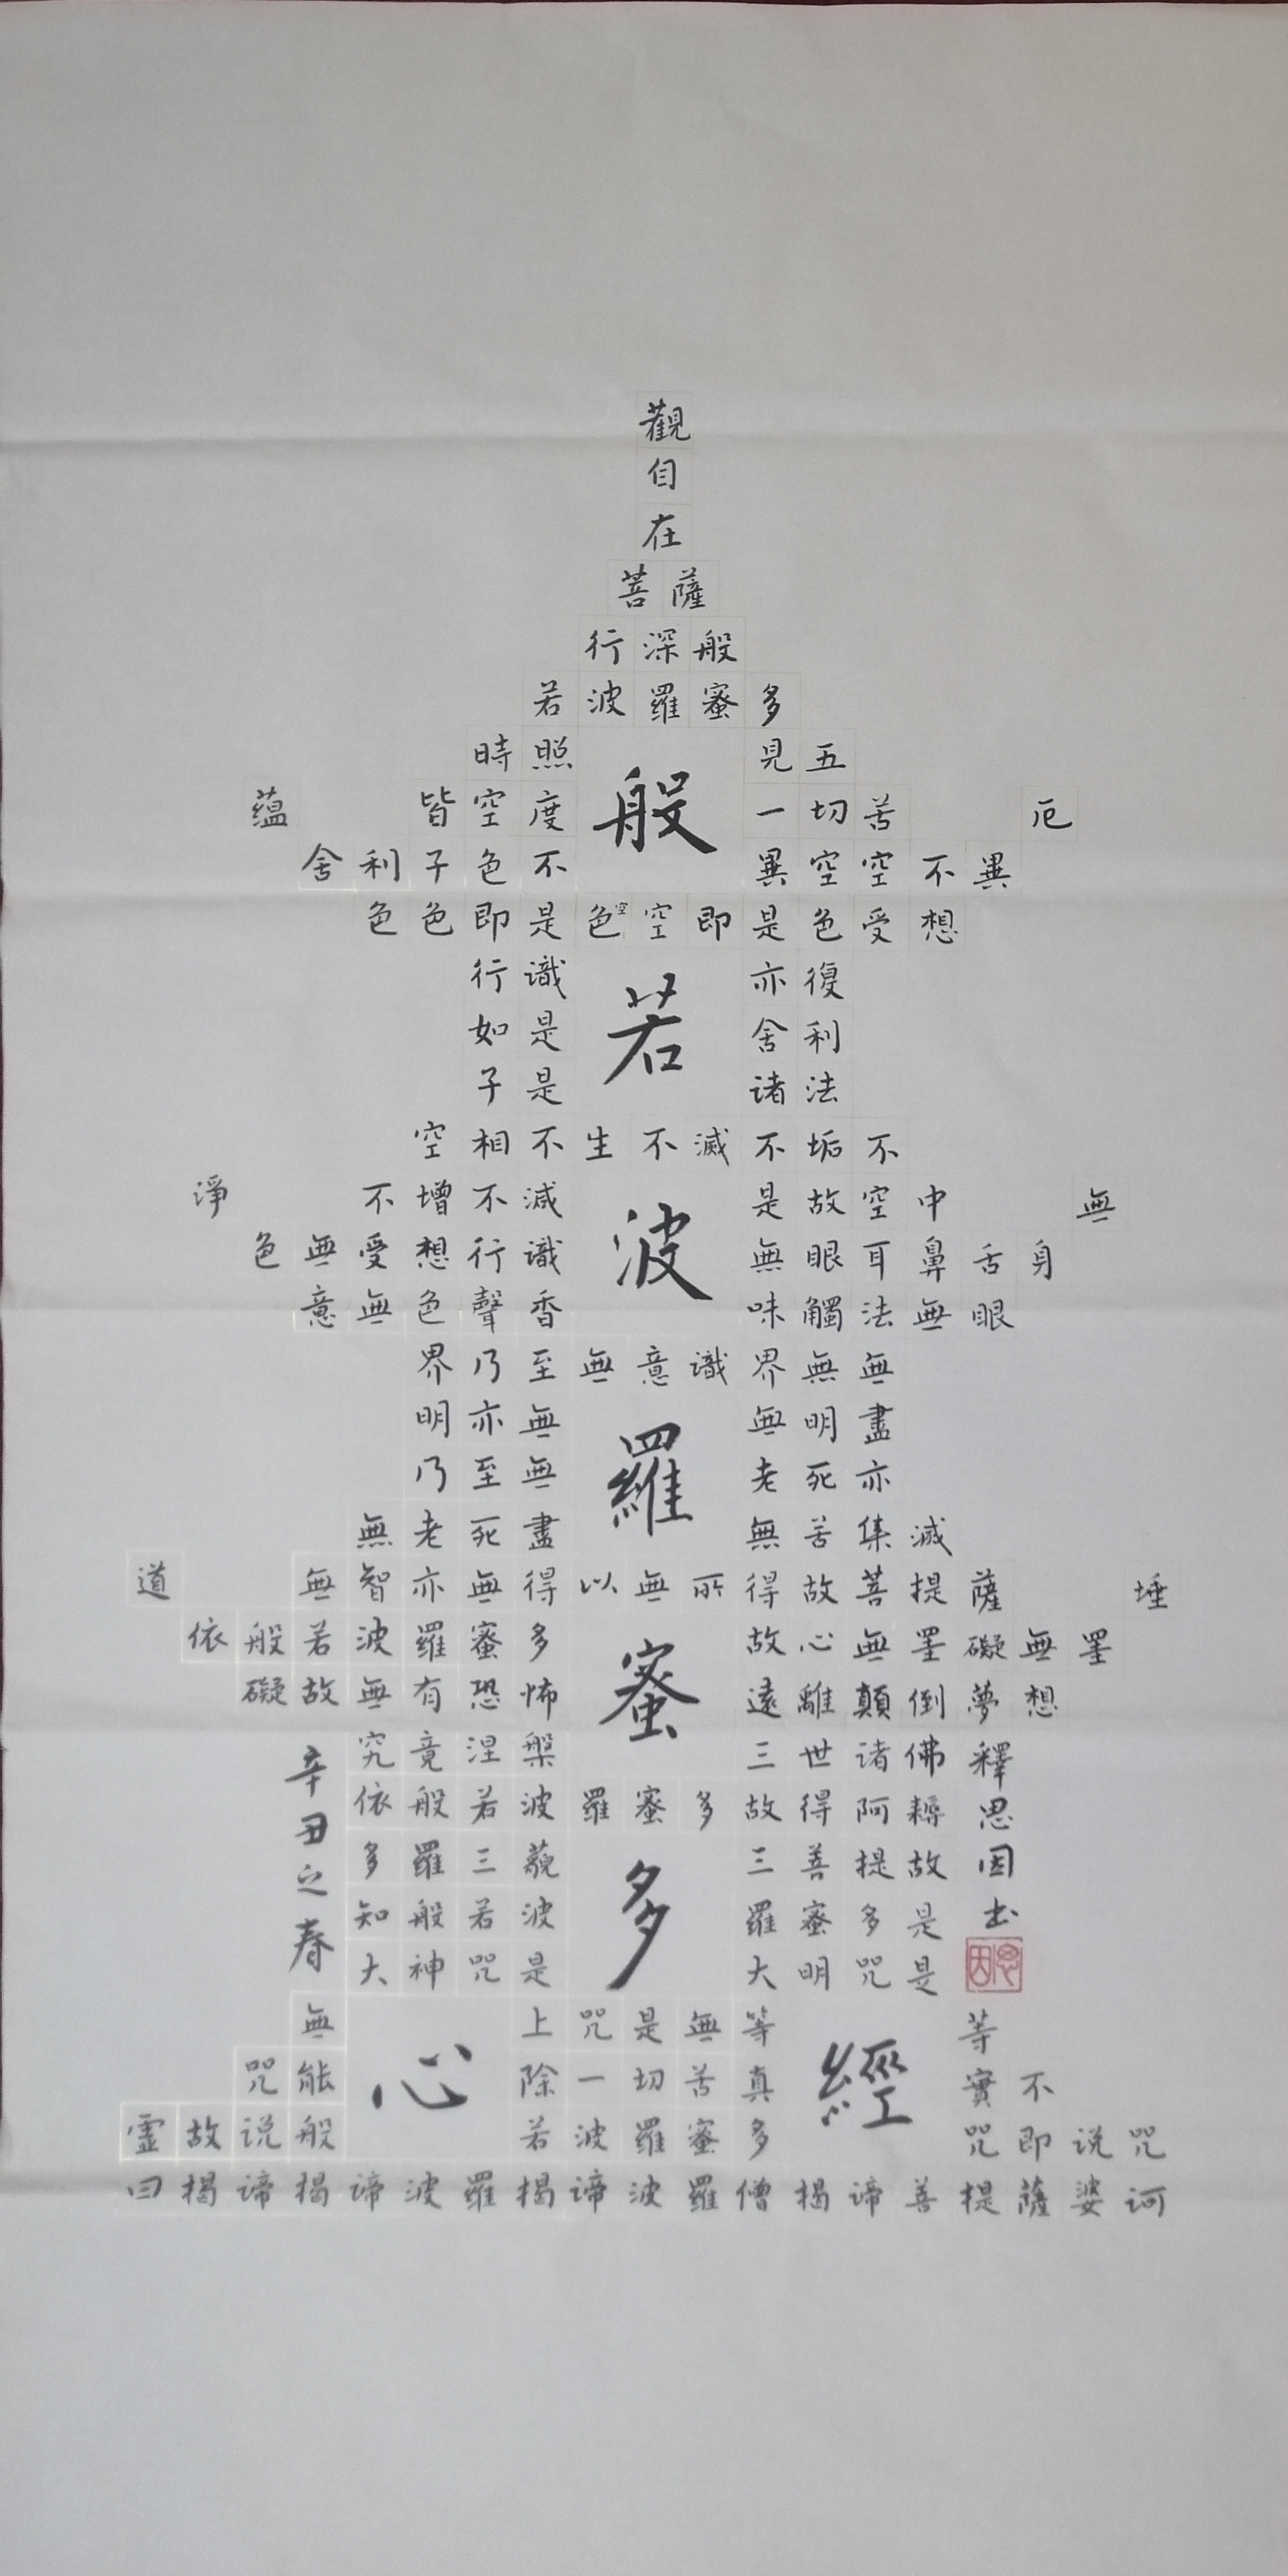 觀
自
在
菩薩
行深般
若波羅蜜多
時照見五
蘊皆空度一切苦厄
般
舍利子色不異空空不異
色色即是色空空即是色受想
行識亦復
如是舍利
若
子是諸法
空相不生不滅不垢不
淨不增不減是故空中無
色無受想行識無眼耳鼻舌身
波
意無色聲香味觸法無眼
界乃至無意識界無無
明亦無無明盡
乃至無老死亦
羅
無老死盡無苦集滅
道無智亦無得以無所得故菩提薩埵
依般若波羅蜜多故心無罣礙無罣
礙故無有恐怖遠離顛倒夢想
蜜
究竟涅槃三世诸佛
依般若波羅蜜多故得阿耨
多羅三藐三菩提故
知般若波羅蜜多是
多
大神咒是大明咒是
無上咒是無等等
咒能除一切苦真實不
心
經
霊故说般若波羅蜜多咒即说咒
曰揭谛揭谛波羅揭谛波羅僧揭谛菩提薩婆诃
辛丑之春
釋思因书
思因